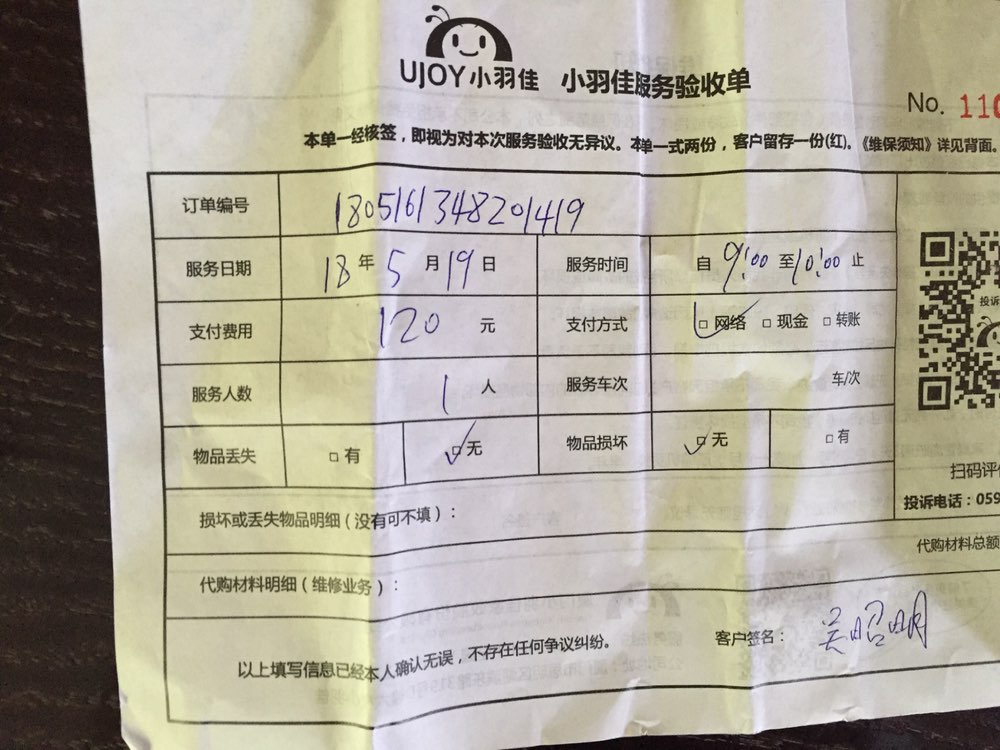 UJOY小羽佳 小羽佳服务验收单
No. 110
本单一经核签，即视为对本次服务验收无异议。本单一式两份，客户留存一份(红)。《维保须知》详见背面。
订单编号 1805161348201419
服务日期 18年5月19日 服务时间 自9:00至10:00止
支付费用 120元 支付方式 □网络 □现金 □转账
服务人数 1人 服务车次 车/次
物品丢失 □有 □无 物品损坏 □无 □有
投诉
扫码评
投诉电话：059
损坏或丢失物品明细（没有可不填）：
代购材料总额
代购材料明细（维修业务）：
以上填写信息已经本人确认无误，不存在任何争议纠纷。 客户签名：吴昭明